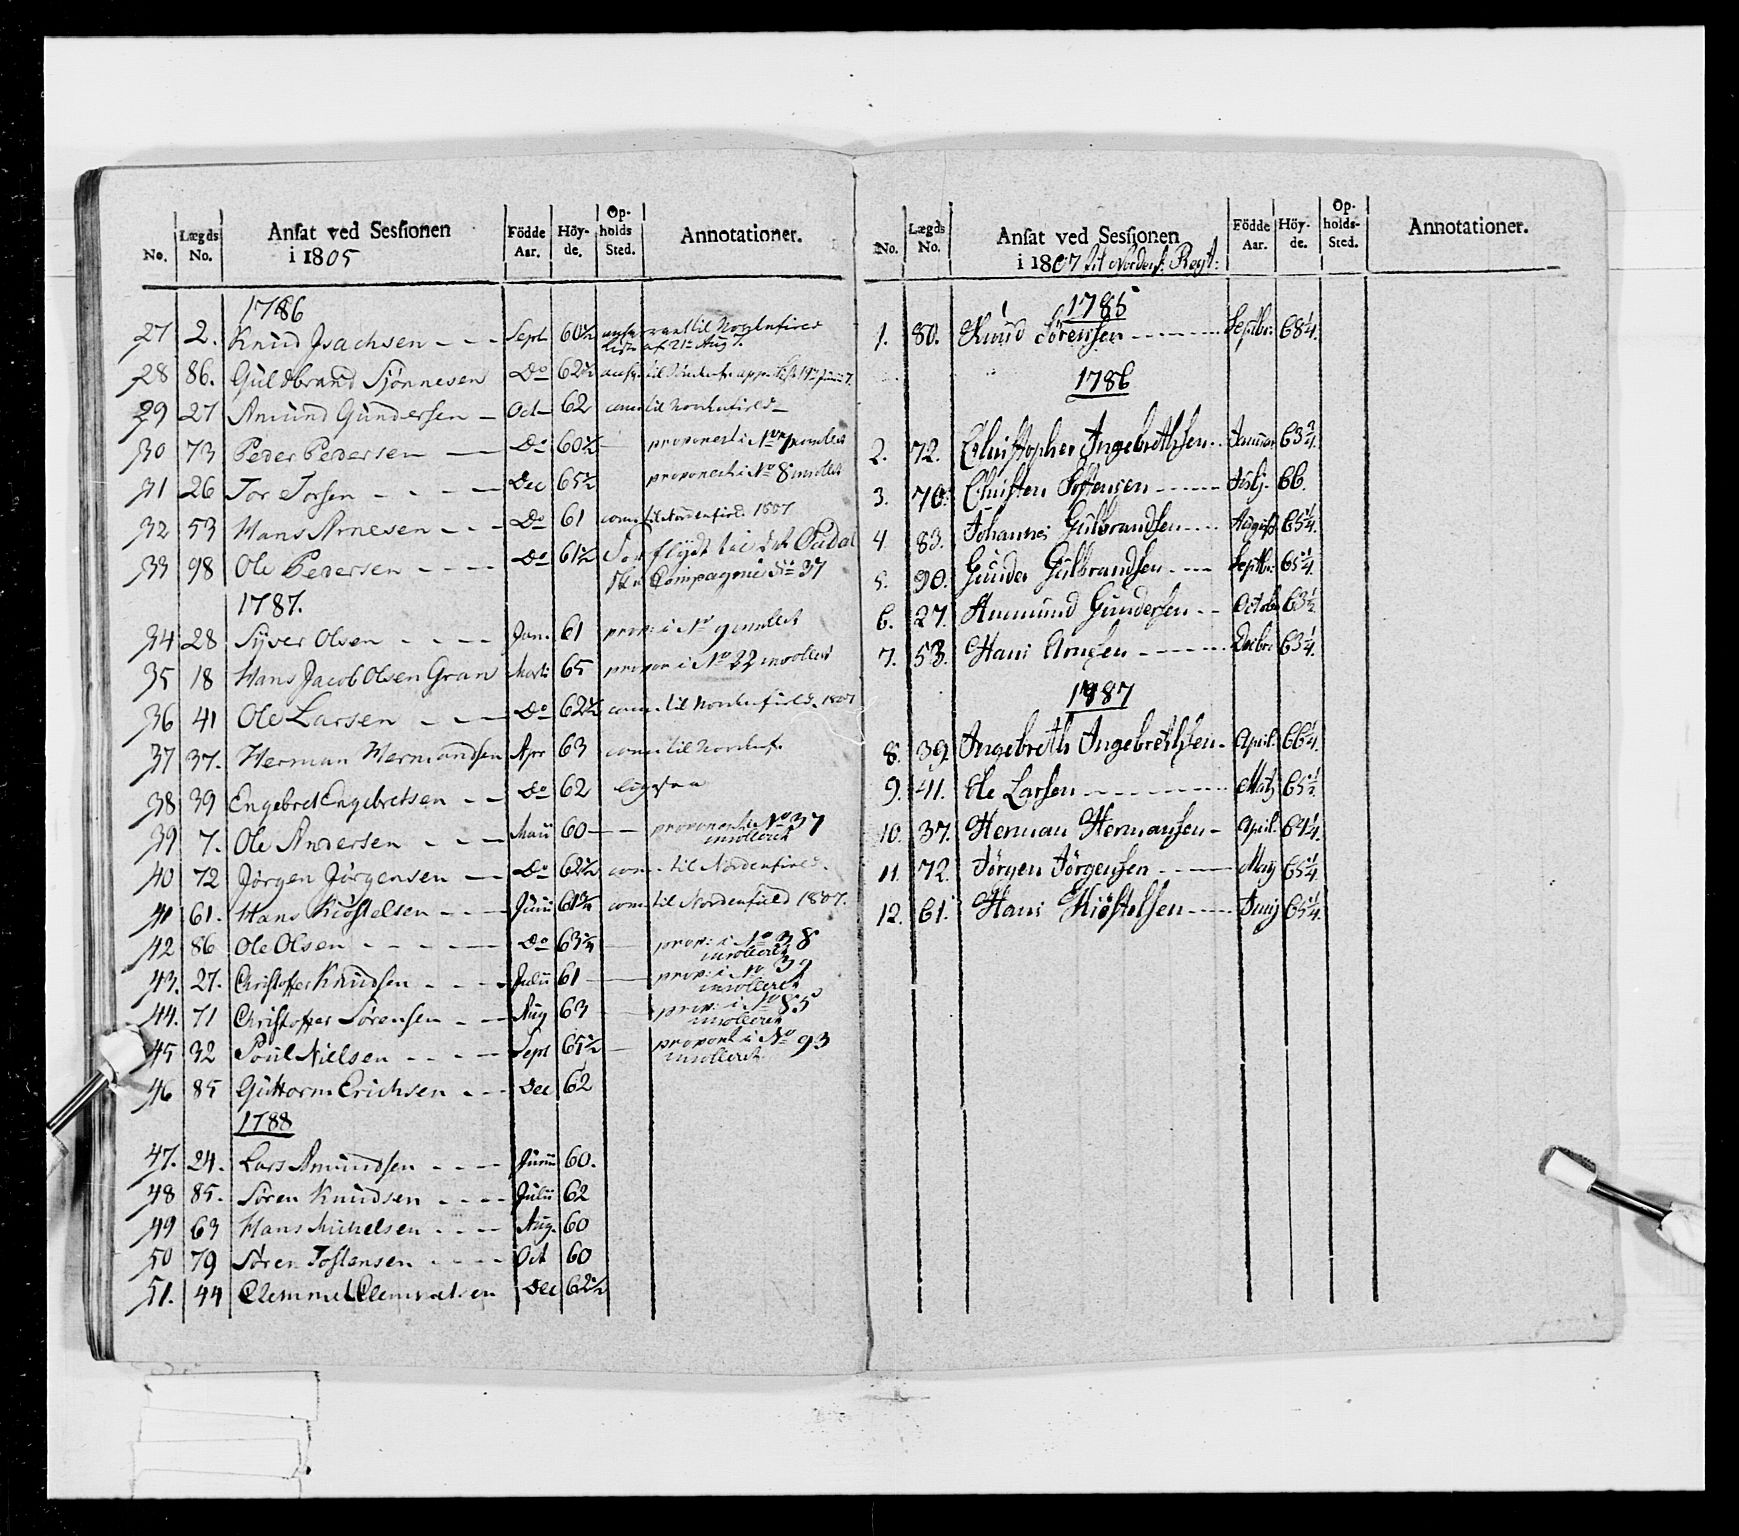 No. Lægds No. Ansat ved Sessionen i 1805 Födde Aar. Höy-de. Op-holds Sted. Annotationer.
1786
27 2. Knud Isachsen - - - Sept 60½
28 86. Guldbrand Siönnesen Do 62½
29 27 Amund Gundersen - Oct 62 til Nordenfields
30 73 Peder Pedersen - Do 60½ proponert i No 7
31 26 Tor Torsen - - - - Dec 65½ proponert i No 8
32 53 Hans Arnesen - - - Do 61 til Nordenfield. 1807
33 98 Ole Pedersen - - - - Do 61½ Forflydt til det
Compagnie No 37
1787.
34 28 Syver Olsen - - - - Jan. 61 prop: i No 9 inrolleret
35 18 Hans Jacob Olsen Gran Marti 65 propon i No 22 inrolleret
36 41 Ole Larsen - - - Do 62½ til Nordenfields. 1807
37 37. Herman Hermandsen Apr 63 til Nordenf.
38 39 Engebret Engebretsen - - Do 62 ligesaa
39 7. Ole Andersen - - - Maii 60 - - proponert i No 37
inrolleret
40 72 Jörgen Jörgensen - Do 62½ til Nordenfields.
41 61. Hans Kiöstelsen - - - Junii 61½ til Nordenfield 1807.
42 86 Ole Olsen - - - - - Do 63½ prop: i No 38
inrolleret
43. 27. Christoffer Knudsen - - - Julii 61 - prop: i No 39
inrolleret
44. 71 Christoffer Sörensen - - Aug 63 prop: i No 85
inrolleret
45 32 Poul Nielsen - - - - Sept 65½ propont i No 93
inrolleret
46 85 Guttorm Erichsen - - Dec 62
1788
47. 24. Lars Amundsen - - - Junii 60.
48 85. Sören Knudsen - - - - Julii 62
49 63 Hans Michelsen - - - Aug. 60
50 79 Sören Tostensen - - - - Oct 60
51. 44 Clemmet Clemmetsen Dec 62½
No. Lægds No. Ansat ved Sessionen i 1807 til Nordenf: Regt: Födde Aar. Höy-de. Op-holds-Sted. Annotationer.
1785
1. 80. Knud Sörensen - - - - Septbr. 68¼.
1786
2. 72. Christopher Ingebrethsen. Januar 63¾.
3. 70. Christen Tostensen - - - - 66.
4. 83. Johannes Gulbrandsen - - - August 65¼.
5. 90. Gunder Gulbrandsen - - - Septbr. 65¼.
6. 27. Ammund Gundersen - - October 63½.
7. 53. Hans Arnesen - - - - Decbr. 63¼.
1787
8. 39. Ingebreth Ingebrethsen. April. 66¼.
9. 41. Ole Larsen - - - - - Martj 65½.
10. 37. Herman Hermansen - April. 64¼.
11. 72. Jörgen Jörgensen - - - Maij 65¼.
12. 61. Hans Kiöstelsen - - - Junij 65¼.